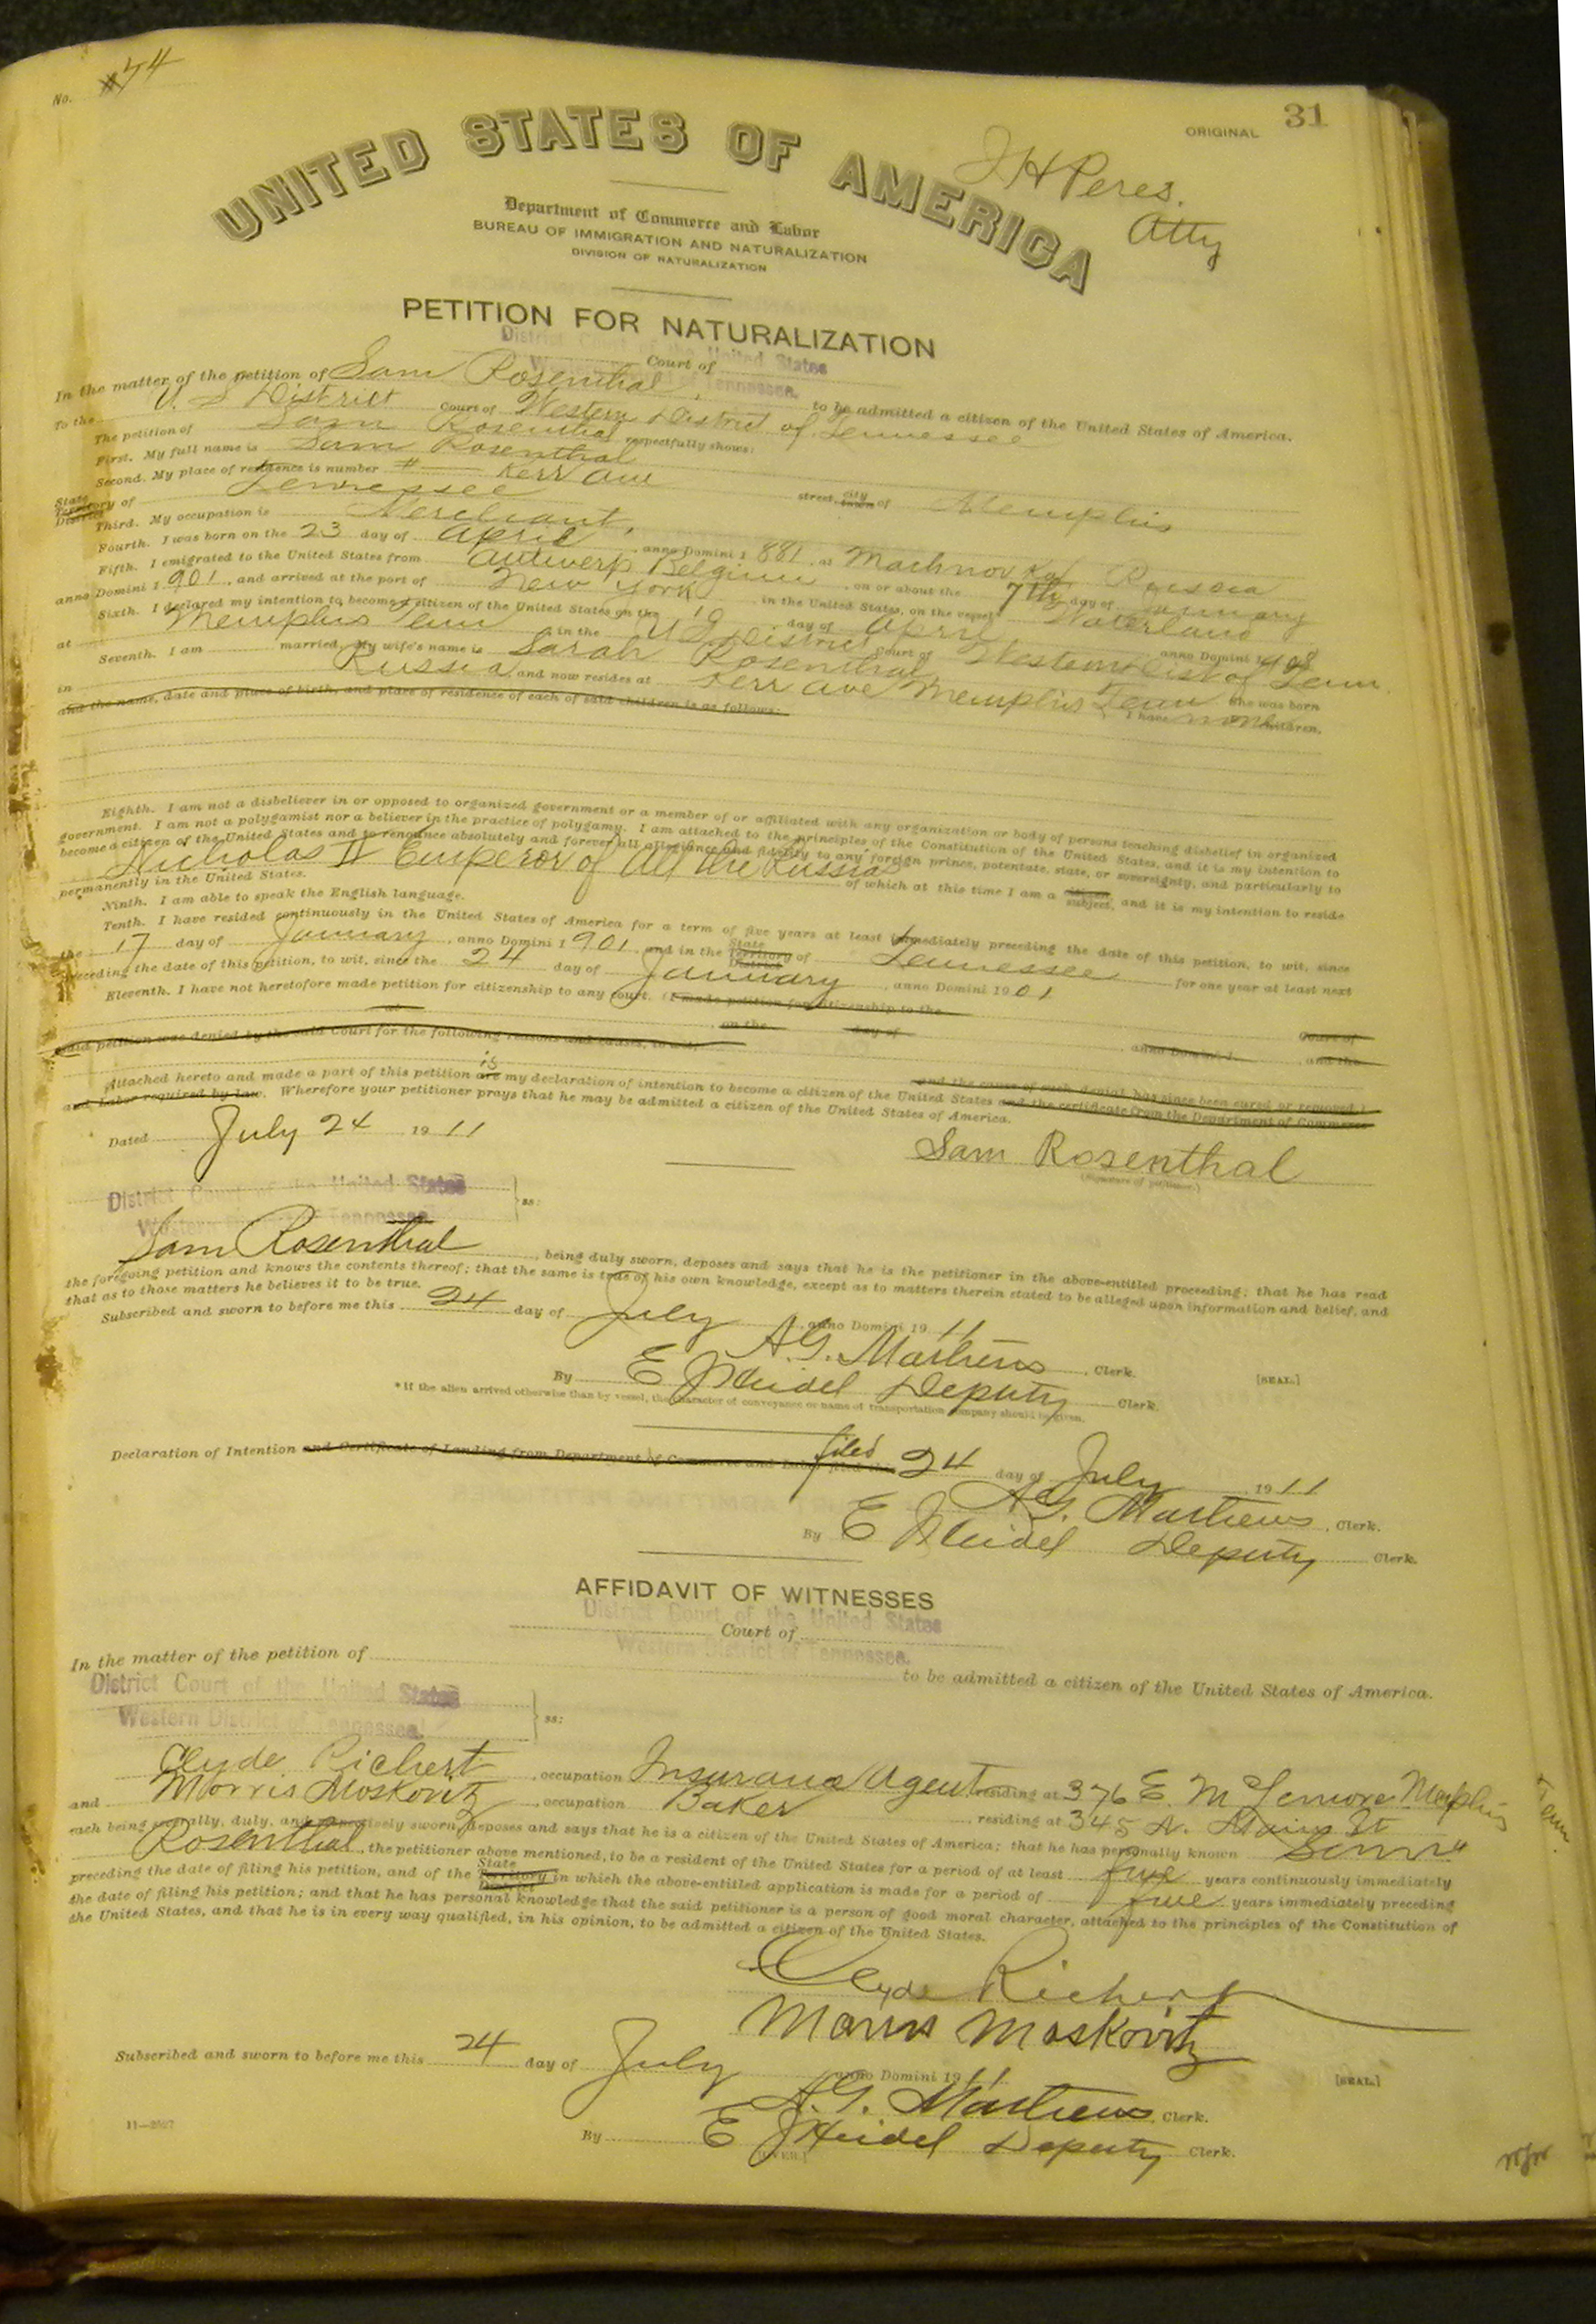 No. #74
ORIGINAL 31
UNITED STATES OF AMERICA
J H Peres.
Atty
Department of Commerce and Labor
BUREAU OF IMMIGRATION AND NATURALIZATION
DIVISION OF NATURALIZATION
PETITION FOR NATURALIZATION
District Court of the United States
Court of
Tennessee.
In the matter of the petition of Sam Rosenthal, to be admitted a citizen of the United States of America.
To the U. S District Court of Western District of Tennessee
The petition of Sam Rosenthal respectfully shows:
First. My full name is Sam Rosenthal
Second. My place of residence is number # Kerr Ave street, city town of Memphis
State Territory District of Tennessee
Third. My occupation is Merchant,
Fourth. I was born on the 23 day of April, anno Domini 1881, at Machnovka Russia
Fifth. I emigrated to the United States from Antwerp Belgium, on or about the 7th day of January
anno Domini 1901, and arrived at the port of New York in the United States, on the vessel Vaterland
Sixth. I declared my intention to become a citizen of the United States on the 19 day of April, anno Domini 1908
at Memphis Tenn in the U S District Court of Western Dist of Tenn.
Seventh. I am married. My wife's name is Sarah Rosenthal She was born
in Russia and now resides at Kerr Ave Memphis Tenn I have none children,
and the name, date and place of birth, and place of residence of each of said children is as follows:
Eighth. I am not a disbeliever in or opposed to organized government or a member of or affiliated with any organization or body of persons teaching disbelief in organized
government. I am not a polygamist nor a believer in the practice of polygamy. I am attached to the principles of the Constitution of the United States, and it is my intention to
become a citizen of the United States and to renounce absolutely and forever all allegiance and fidelity to any foreign prince, potentate, state, or sovereignty, and particularly to
Nicholas II Emperor of All the Russias of which at this time I am a citizen subject, and it is my intention to reside
permanently in the United States.
Ninth. I am able to speak the English language.
Tenth. I have resided continuously in the United States of America for a term of five years at least immediately preceding the date of this petition, to wit, since
the 17 day of January, anno Domini 1901, and in the State Territory District of Tennessee for one year at least next
preceding the date of this petition, to wit, since the 24 day of January, anno Domini 1901
Eleventh. I have not heretofore made petition for citizenship to any court. (I made petition for citizenship to the Court of
at on the day of anno Domini 1, and the
said petition was denied by the said Court for the following reasons and causes, to wit:
and the cause of such denial has since been cured or removed.)
Attached hereto and made a part of this petition are is my declaration of intention to become a citizen of the United States and the certificate from the Department of Commerce
and Labor required by law. Wherefore your petitioner prays that he may be admitted a citizen of the United States of America.
Dated July 24 1911
Sam Rosenthal
(Signature of petitioner.)
District Court of the United States
Western District of Tennessee.
ss:
Sam Rosenthal, being duly sworn, deposes and says that he is the petitioner in the above-entitled proceeding; that he has read
the foregoing petition and knows the contents thereof; that the same is true of his own knowledge, except as to matters therein stated to be alleged upon information and belief, and
that as to those matters he believes it to be true.
Subscribed and sworn to before me this 24 day of July, anno Domini 1911
A.G. Mathews, Clerk.
[SEAL.]
By E J Heidel Deputy Clerk.
* If the alien arrived otherwise than by vessel, the character of conveyance or name of transportation company should be given.
Declaration of Intention and Certificate of Landing from Department of Commerce and Labor filed this filed 24 day of July 1911
A.G. Mathews, Clerk.
By E J Heidel Deputy Clerk.
AFFIDAVIT OF WITNESSES
District Court of the United States
Court of
Western District of Tennessee.
In the matter of the petition of to be admitted a citizen of the United States of America.
District Court of the United States
Western District of Tennessee.
ss:
Clyde Richert, occupation Insurance Agent residing at 376 E. McLemore Memphis Tenn.
and Morris Moskovitz, occupation Baker residing at 345 N. Main St
each being severally, duly, and respectively sworn, deposes and says that he is a citizen of the United States of America; that he has personally known Sam
Rosenthal, the petitioner above mentioned, to be a resident of the United States for a period of at least five years continuously immediately
preceding the date of filing his petition, and of the State Territory District in which the above-entitled application is made for a period of five years immediately preceding
the date of filing his petition; and that he has personal knowledge that the said petitioner is a person of good moral character, attached to the principles of the Constitution of
the United States, and that he is in every way qualified, in his opinion, to be admitted a citizen of the United States.
Clyde Richert
Morris Moskovitz
Subscribed and sworn to before me this 24 day of July anno Domini 1911
[SEAL.]
A.G. Mathews Clerk.
By E J Heidel Deputy Clerk.
11—2527